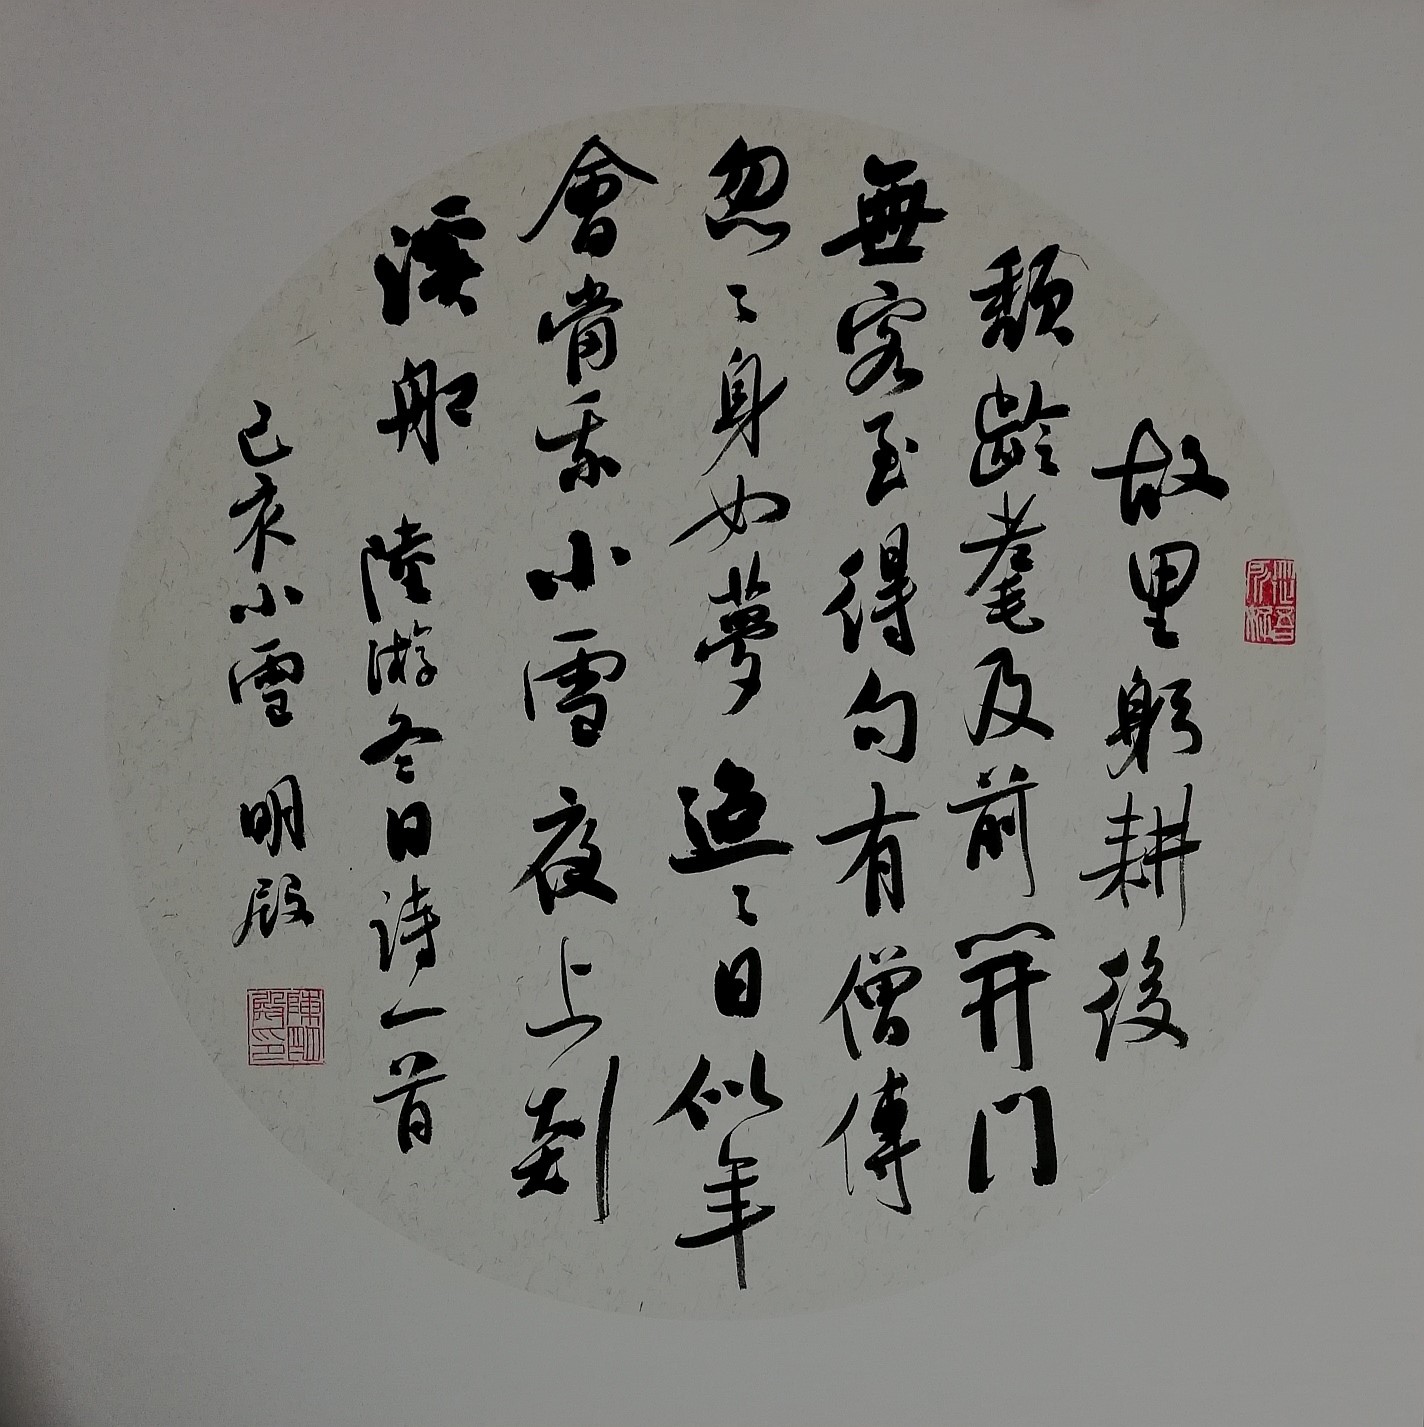 故里躬耕後
頽齡耄及前開門
無客至得句有僧傳
忽〻身如夢迢〻日似年
會當乘小雪夜上剡
溪船 陸游冬日詩一首
己亥小雪 明殿
陳明殿印